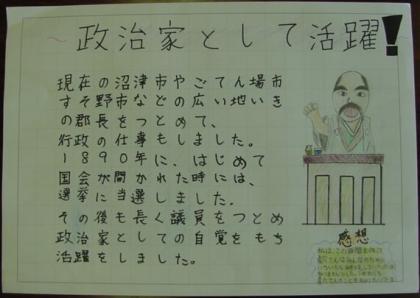 ~政治家として活躍!
現在の沼津市やごてん場市
すそ野市などの広い地いき
の郡長をつとめて、
行政の仕事もしました。
1890年に、はじめて
国会が開かれた時には、
選挙に当選しました。
その後も長く議員をつとめ
政治家としての自覚をもち
活躍をしました。
感想